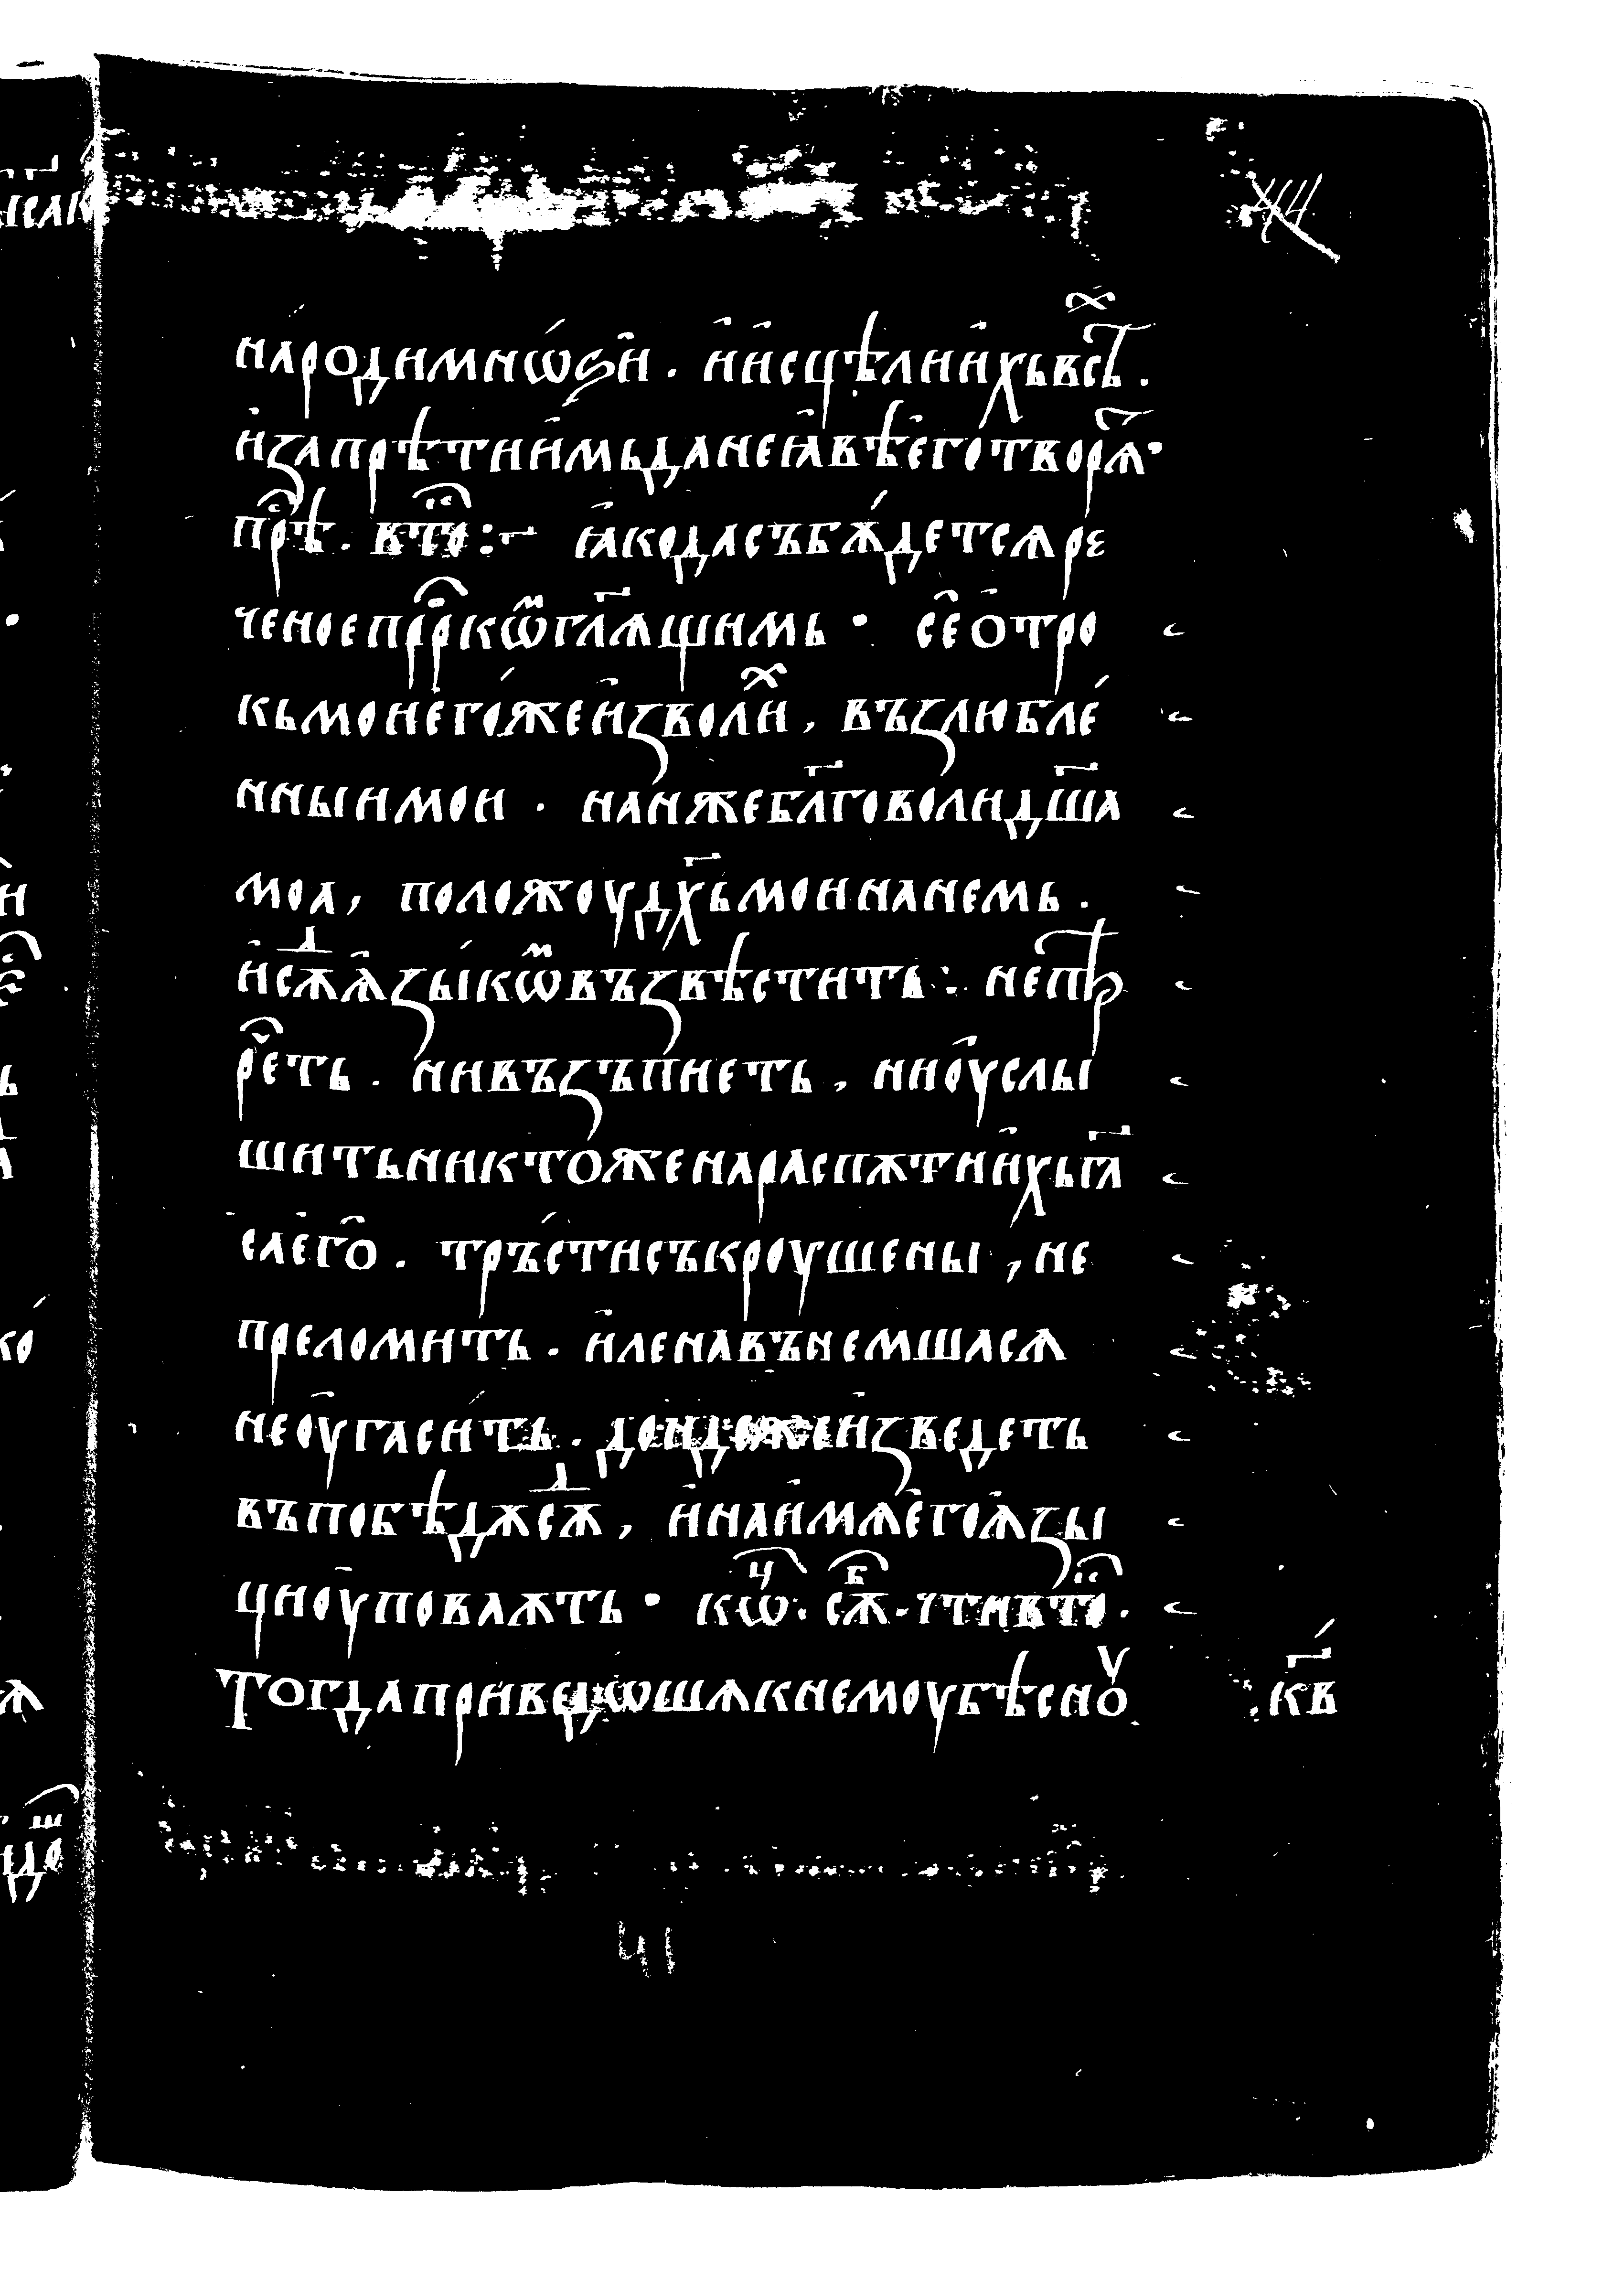 народимнѡѕи҆ . и҆и҆сцѣлии҆хьвсѣⷯ .
и҆запрѣтии҆мьданеꙗ҆вѣе҆готворѧⷮ·
прⷣѣⷭ . вт҃о :~ ꙗ҆кодасъбѫ́детсѧре
ченоепррⷪ҇кѡⷨгл҃ѧщимь · се҆ѻ҆тро
кьмоие҆го́жеи҆зволиⷯ , въzлюбле́
нныимои · нанжебл҃говолидш҃а
моа , положоудх҃ьмоинанемь .
и҆сѫⷣѧ҆зы́кѡⷨвъзвѣститъ : непрѣ
рⷱ҇еть . нивъзъпиеть , ниоу҆слы
шитьниктоженараспѫтии҆хьгл҃
сае҆го . тръ́стисъкроушены , не
преломитъ . и҆ленавънемшасѧ
неоу҆гаси́тъ . дондежеи҆зведеть
въпобѣдѫсѫⷣ , и҆наи҆мѧе҆гоѧ҆зы
циоу҆поваѫть · кѡⷰ҇ . сѫⷠ҇ . чтивт҃о .
Тогдаприведѡшѫкнемоубѣсноⷹ
кв҃
41